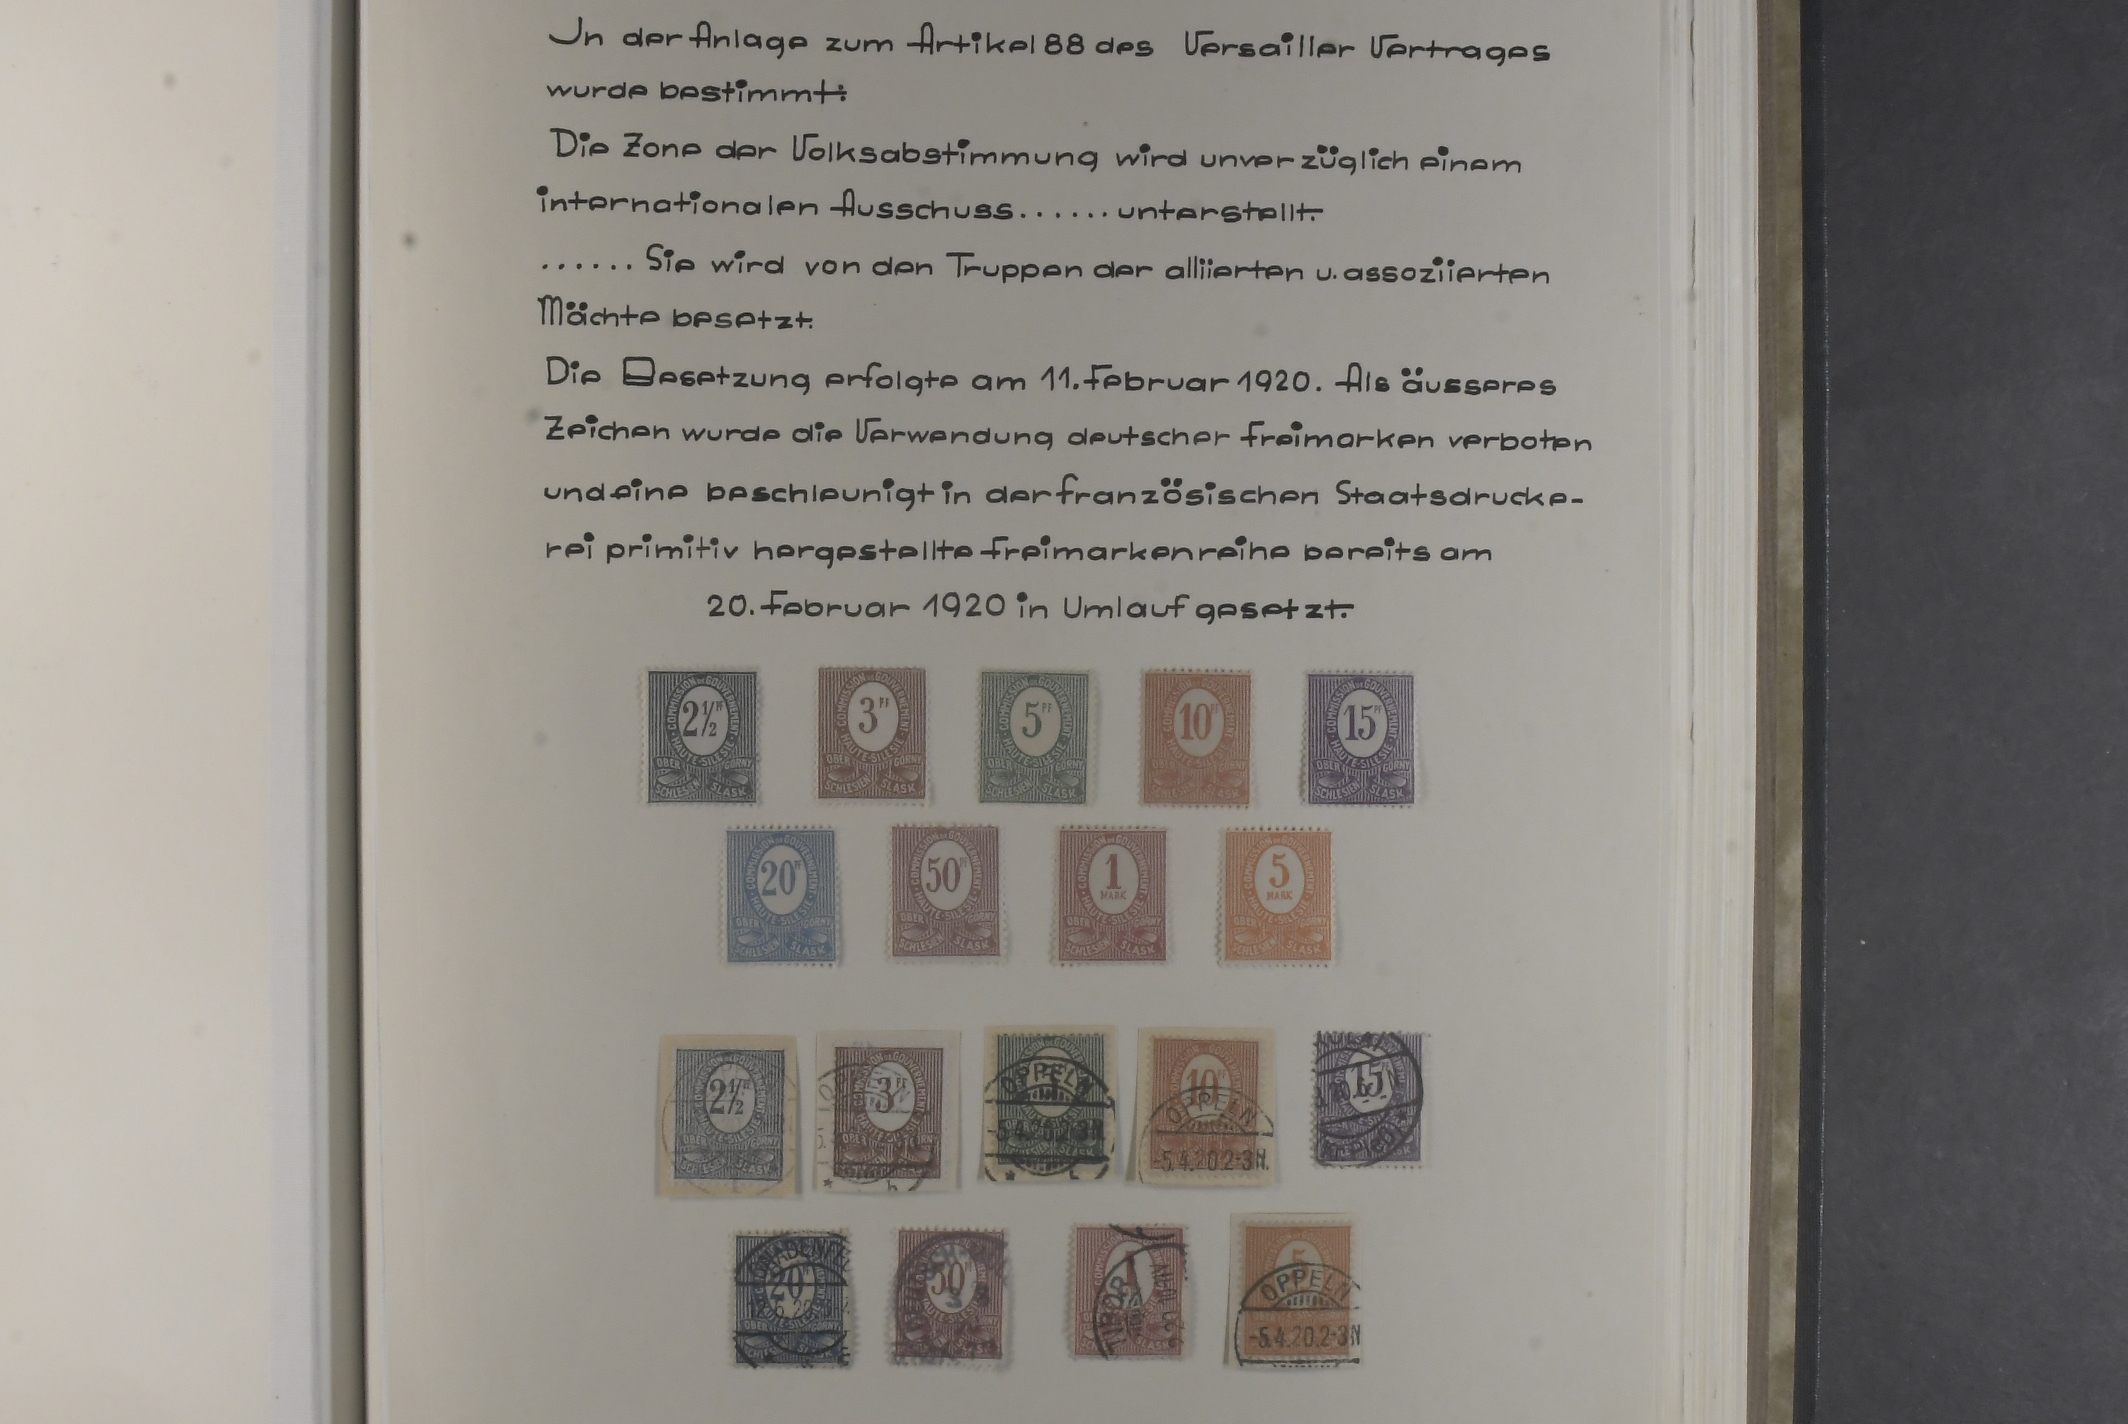 In der Anlage zum Artikel 88 des Versailler Vertrages
wurde bestimmt:
Die Zone der Volksabstimmung wird unverzüglich einem
internationalen Ausschuss...... unterstellt.
...... Sie wird von den Truppen der alliierten u. assoziierten
Mächte besetzt.
Die Besetzung erfolgte am 11. Februar 1920. Als äusseres
Zeichen wurde die Verwendung deutscher Freimarken verboten
und eine beschleunigt in der französischen Staatsdrucke-
rei primitiv hergestellte Freimarkenreihe bereits am
20. Februar 1920 in Umlauf gesetzt.
COMMISSION DE GOUVERNEMENT HAUTE-SILESIE 2½ PF OBER SCHLESIEN GORNY SLASK
COMMISSION DE GOUVERNEMENT HAUTE-SILESIE 3 PF OBER SCHLESIEN GORNY SLASK
COMMISSION DE GOUVERNEMENT HAUTE-SILESIE 5 PF OBER SCHLESIEN GORNY SLASK
COMMISSION DE GOUVERNEMENT HAUTE-SILESIE 10 PF OBER SCHLESIEN GORNY SLASK
COMMISSION DE GOUVERNEMENT HAUTE-SILESIE 15 PF OBER SCHLESIEN GORNY SLASK
COMMISSION DE GOUVERNEMENT HAUTE-SILESIE 20 PF OBER SCHLESIEN GORNY SLASK
COMMISSION DE GOUVERNEMENT HAUTE-SILESIE 50 PF OBER SCHLESIEN GORNY SLASK
COMMISSION DE GOUVERNEMENT HAUTE-SILESIE 1 MARK OBER SCHLESIEN GORNY SLASK
COMMISSION DE GOUVERNEMENT HAUTE-SILESIE 5 MARK OBER SCHLESIEN GORNY SLASK
COMMISSION DE GOUVERNEMENT HAUTE-SILESIE 2½ PF OBER SCHLESIEN GORNY SLASK
3 PF
OPPELN
10 OPPELN -5.4.20.2-3N.
15
20
50
1
5 OPPELN -5.4.20.2-3N